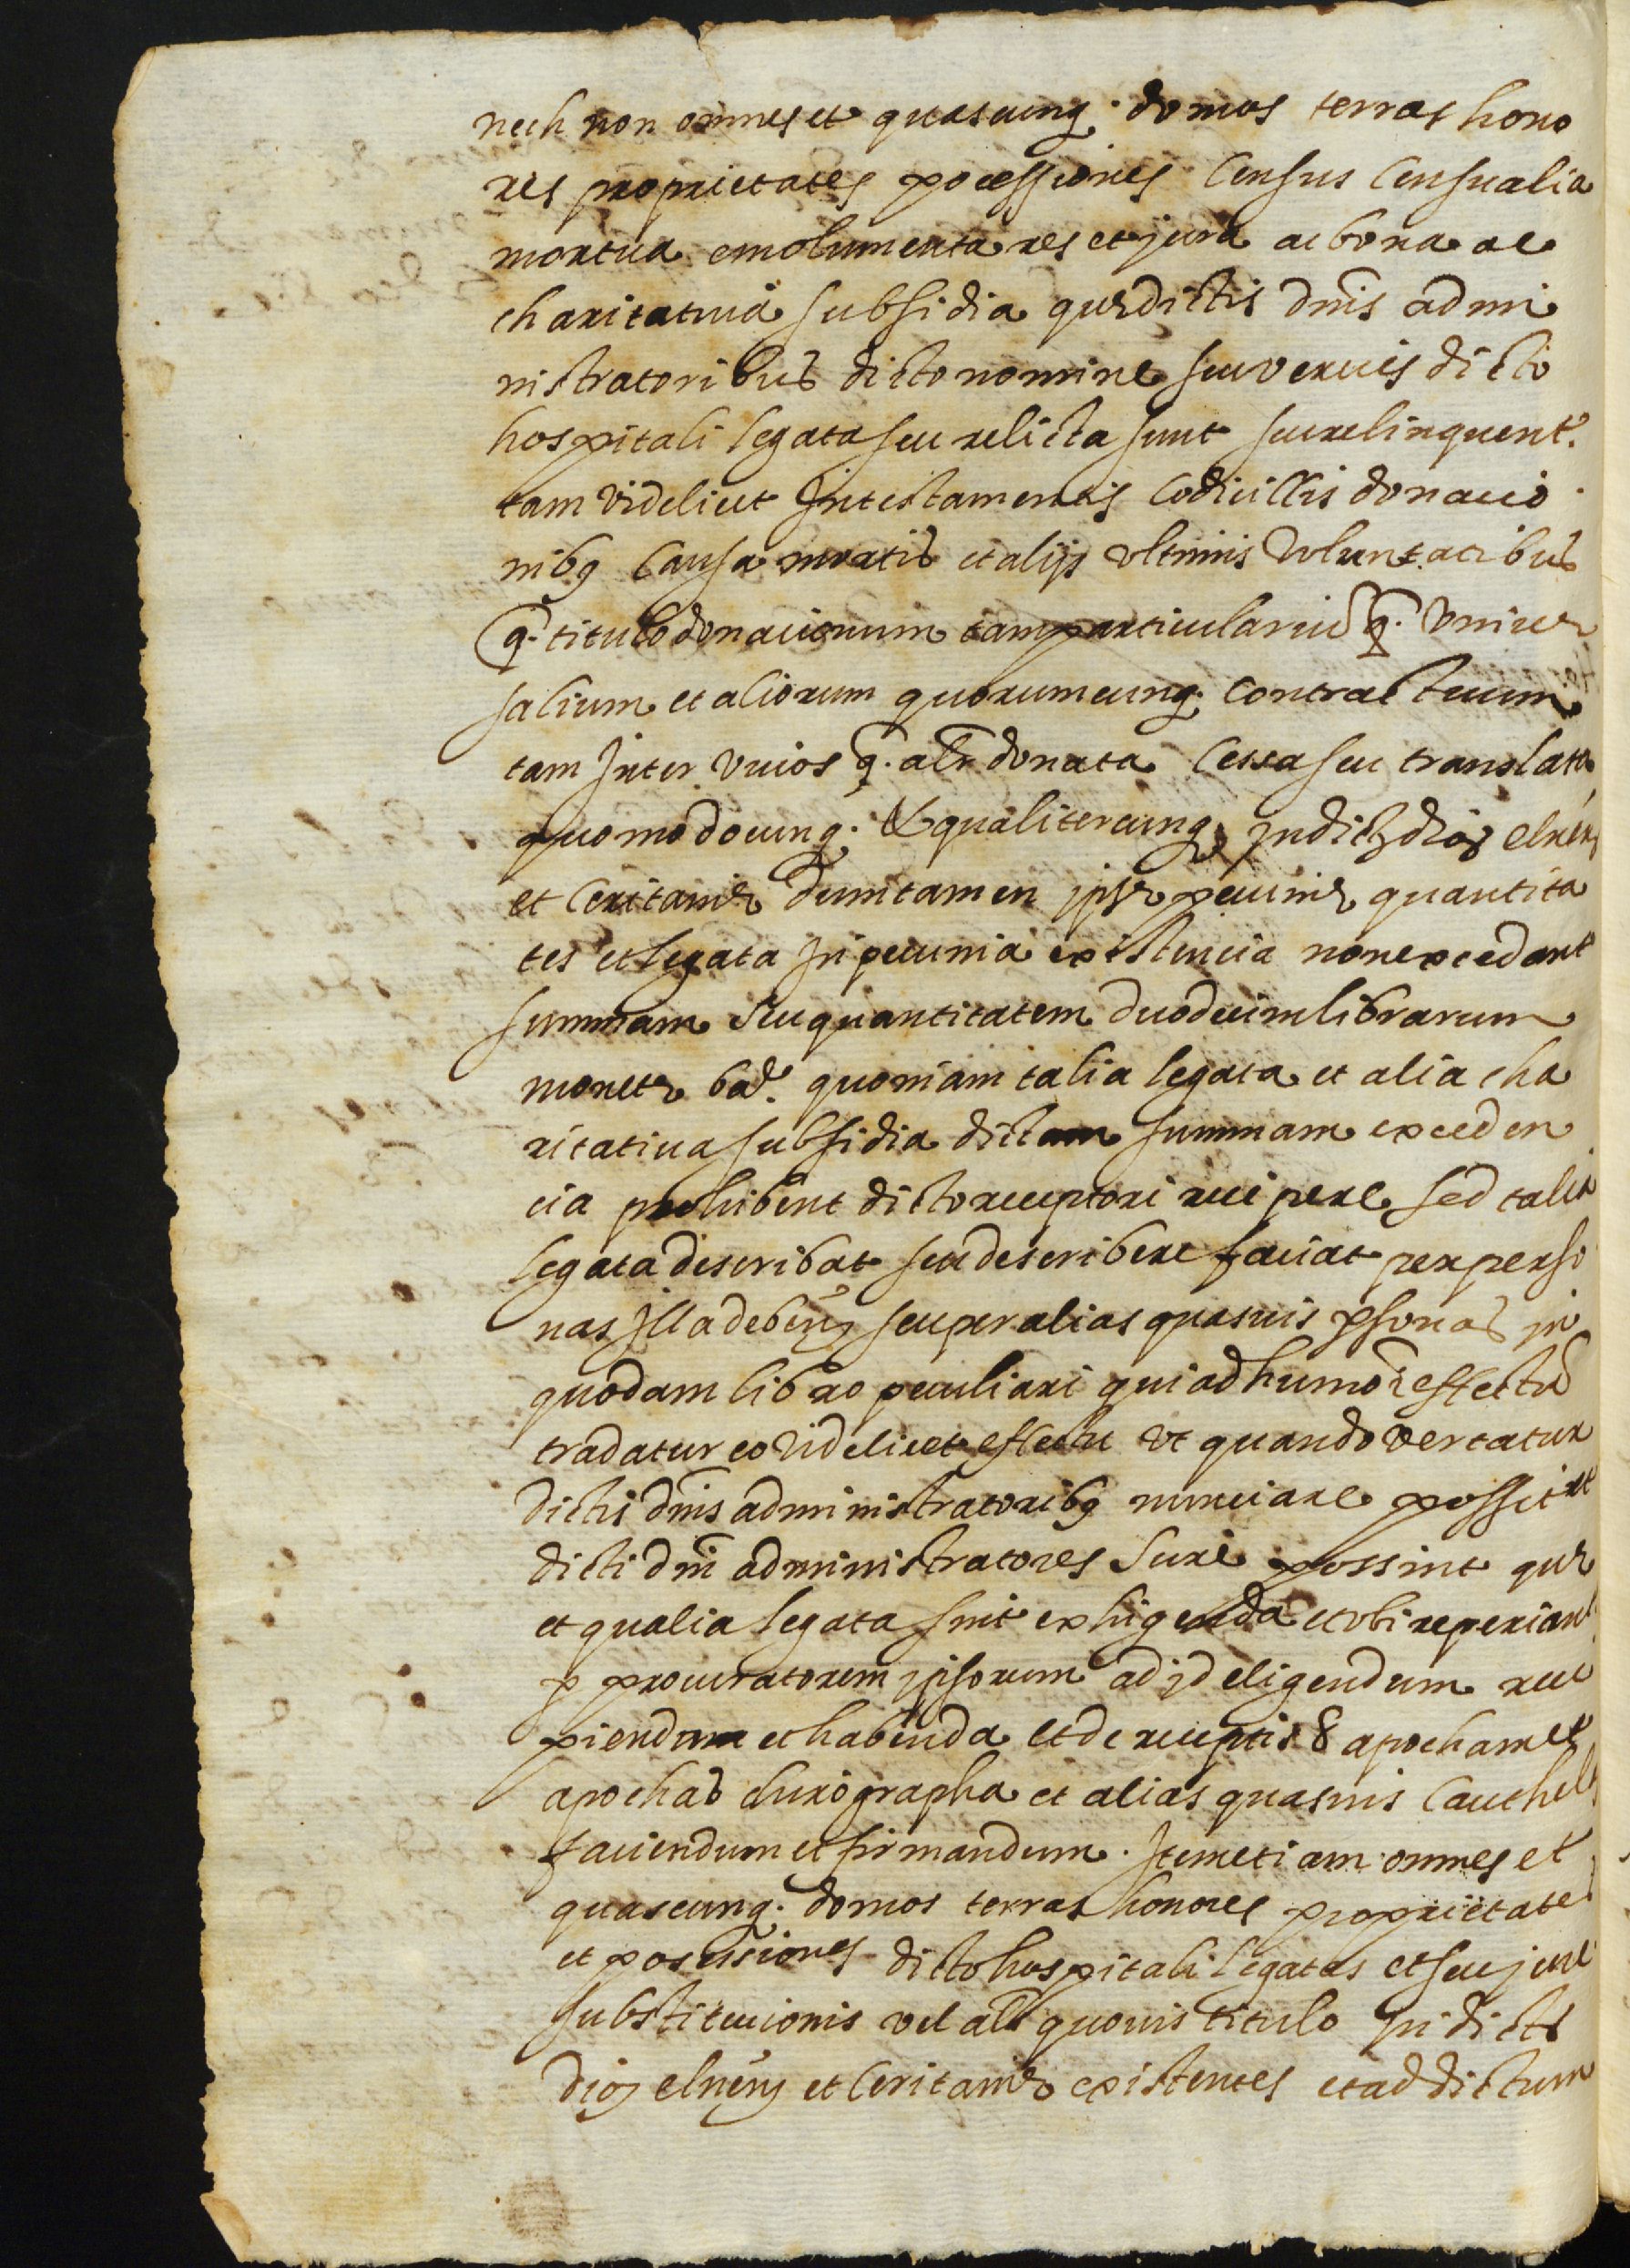 nech non omnes et quascunq. domos terras hono
res proprietates pocessiones Census Censualia
mortua emolumenta res et jura ac bona ac
charitatiua subsidia que dictis dnis admi
nistratoribus dicto nomine seu verius dicto
hospitali legata seu relicta sunt seu relinquent.
tam videlicet In testamentis Codicillis donacio
nibq Causa mortis et alijs vltimis Voluntatibus
q. titulo donacionum tam particulariũ q. vniuer
salium et aliorum quorumcunq. contractuum
tam Inter viuos q. alr donata Cessa seu translata
quomodocunq. & qualitercunq. In dict dios elnen
et Ceritanie dum tamen ipse pecunie quantita
tes et legata In pecunia existencia non excedant
summam seu quantitatem duodecim librarum
monete bar. quoniam talia legata et alia cha
ritatiua subsidia dictam summam exceden
cia prohibent dicto receptori recipere sed talia
legata describat seu describere faciat per perso
nas Illa debens seu per alias quasuis psonas in
quodam libro peculiari qui ad humoi effectũ
tradatur eo videlicet effectu vt quando vertatur
dictis dnis administratoribq nunciare possit et
dicti dni administratores scire possint que
et qualia legata sint exhigenda et vbi reperiant
p procuratorem ipsorum ad id eligendum reci
piendum et habenda et de receptis & apocham et
apochas chirographa et alias quasuis Cauthelas
faciendum et firmandum. Item etiam omnes et
quascunq. domos terras honores proprietates
et possessiones dicto hospitali legatas et seu jure
substitucionis vel alr quouis titulo In dictis
dios elnens et Ceritanie existentes et ad dictum